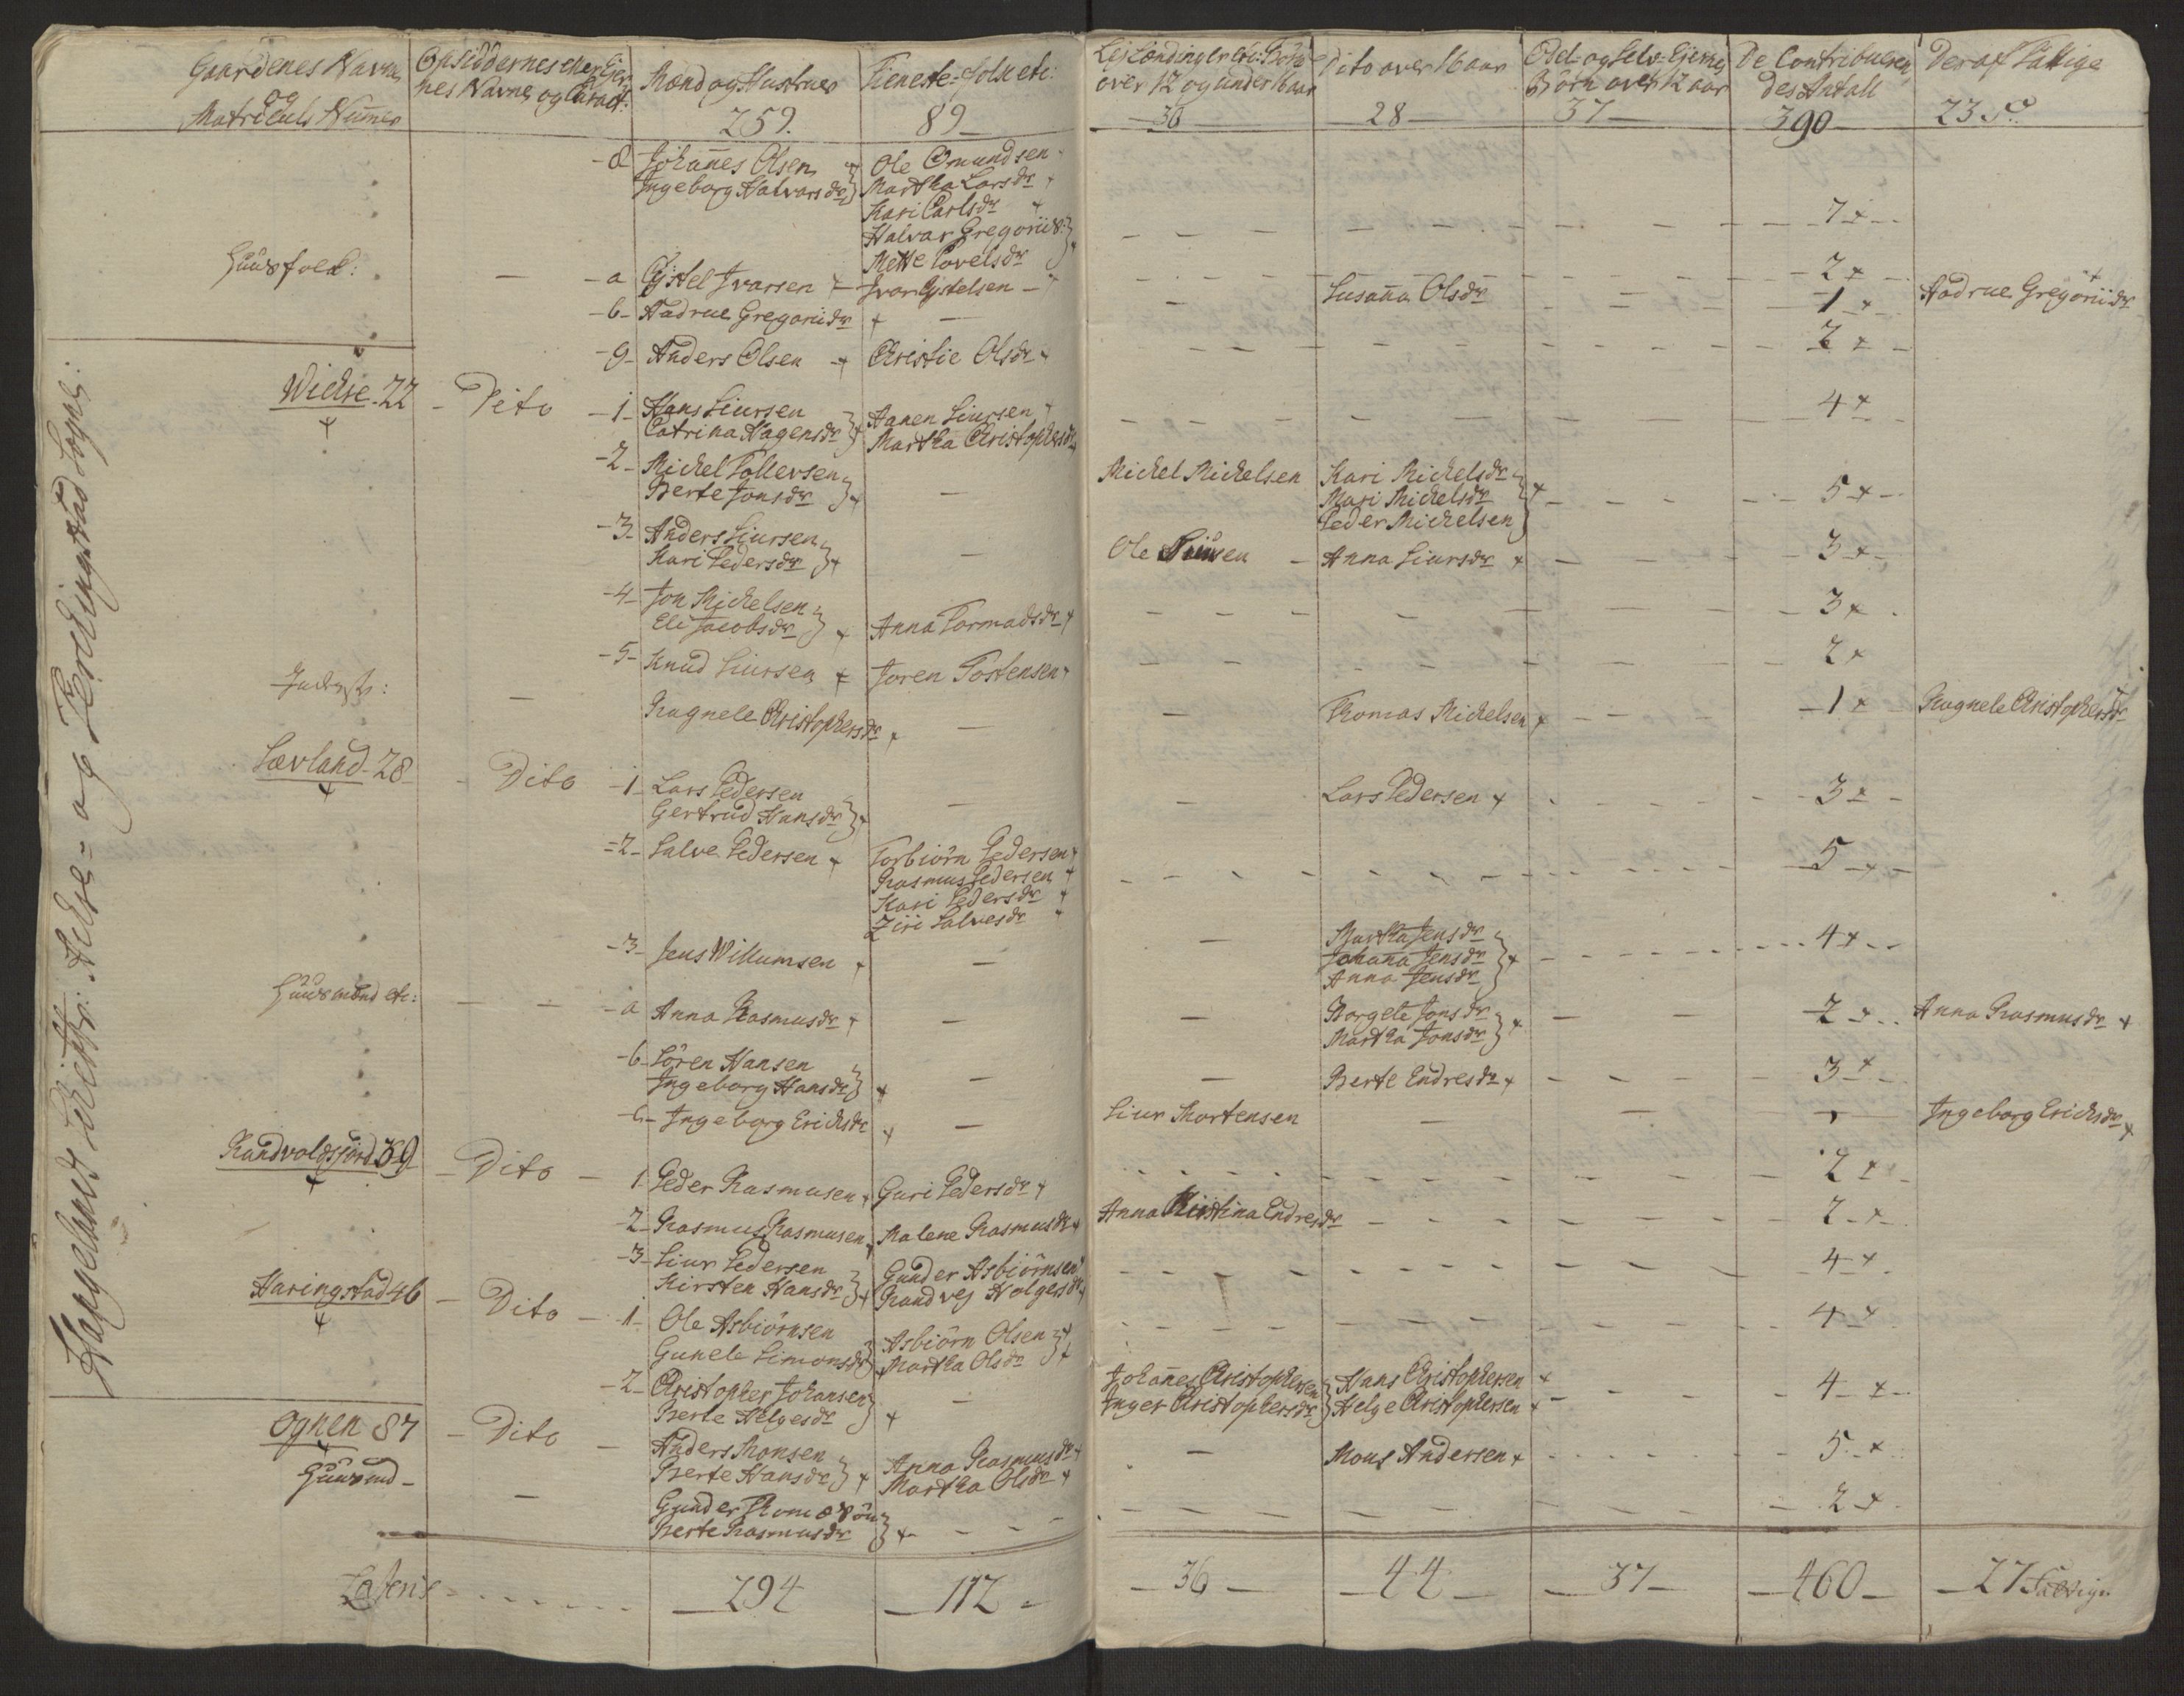 Gaardenes Navne
og
Matriculs Numer
Opsiddernes eller Eier
nes Navne og Caract:
Mænd og Hustruer
259.
Tieneste-Folk etc:
89
over 12 og under 16 aar
30
Dito over 16 aar
28
Odel- og Selv-Eiernes
Börn over 12 aar
37
De Contribueren
des Antall
390
Deraf Fattige
23
Johannes Olsen
Ingeborg Halvarsdr
Ole Omundsen
Martha Larsdr
Kari Carlsdr
Halvar Gregorii
Mette Povelsdr
7
Huusfolk:
a Kistel Ivarsen
Ivar Kistelsen
2
b Aadrue Gregoriidr
Susanna Olsdr
1
Aadrue Gregoriidr
9 Anders Olsen
Christie Olsdr
2
Wickse 22
Dito
1 Hans Siursen
Catrina Hagensdr
Aanen Siursen
Martha Christophersdr
4
2 Mickel Tollevsen
Berte Jonsdr
Mickel Mickelsen
Kari Mickelsdr
Mari Mickelsdr
Peder Mickelsen
5
3 Anders Siursen
Kari Pedersdr
Ole Siursen
Anna Siursdr
3
4 Jon Mickelsen
Eli Jacobsdr
Anna Tormadsdr
3
5 Knud Siursen
Joren Tostensen
2
Ragnele Christophersdr
Thomas Mickelsen
1
Ragnele Christophersdr
Sævland 28
Dito
1 Lars Pedersen
Gertrud Hansdr
Lars Pedersen
3
2 Salve Pedersen
Torbiörn Pedersen
Rasmus Pedersen
Kari Pedersdr
Ziri Salvesdr
5
3 Jens Willumsen
Martha Jensdr
Johanna Jensdr
Anna Jensdr
4
Huusmænd etc:
a Anna Rasmusdr
Borgele Jonsdr
Martha Jonsdr
2
Anna Rasmusdr
b Sören Hansen
Ingeborg Hansdr
Berte Endresdr
3
c Ingeborg Erichsdr
Siur Mortensen
Ingeborg Erichsdr
39
Dito
1 Peder Rasmusen
Guri Pedersdr
2
2 Rasmus Rasmusen
Malene Rasmusdr
Anna Kirstina Endresdr
2
3 Siur Pedersen
Kirsten Hansdr
Gunder Asbiörnsen
Randvej Holgersdr
4
Haringstad 46
Dito
1 Ole Asbiörnsen
Gunele Simonsdr
Asbiörn Olsen
Martha Olsdr
4
2 Christopher Johansen
Berte Helgesdr
Johannes Christophersen
Inger Christophersdr
Hans Christophersen
Helge Christophersen
4
Ognen 87
Dito
Anders Monsen
Berte Hansdr
Anna Rasmusdr
Martha Olsdr
Mons Andersen
5
Gunder
Berte Rasmusdr
2
Lateris
294
112
36
44
37
460
27 Fattige